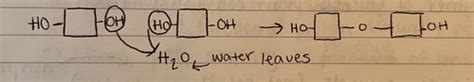 HO- -OH HO- -OH → HO- -O- -OH
H₂O ← water leaves